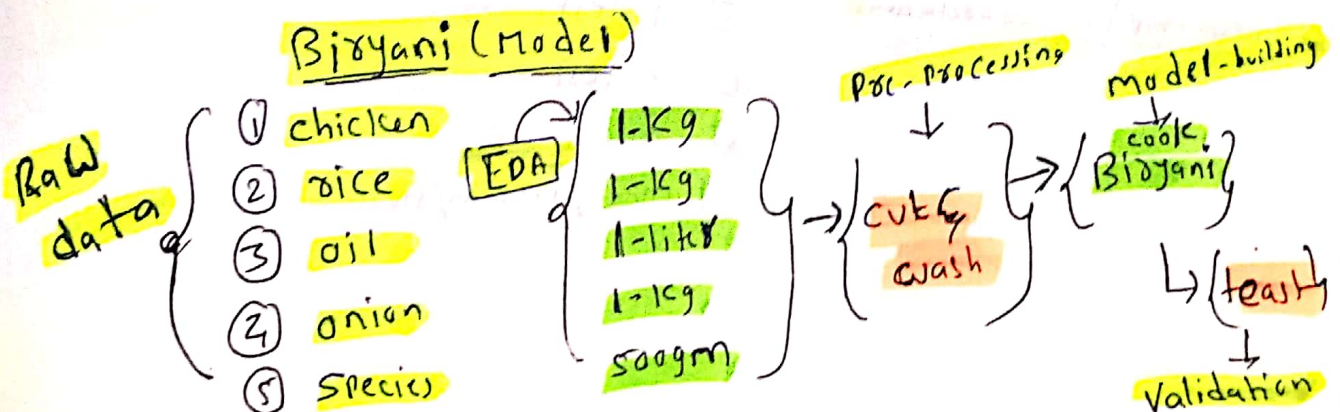 Biryani (Model)
Raw
data
① chicken
② rice
③ oil
④ onion
⑤ Species
EDA
1-Kg
1-Kg
1-litr
1-Kg
500gm
Pre-Processing
cut &
wash
model-building
cook
Biryani
teast
Validation